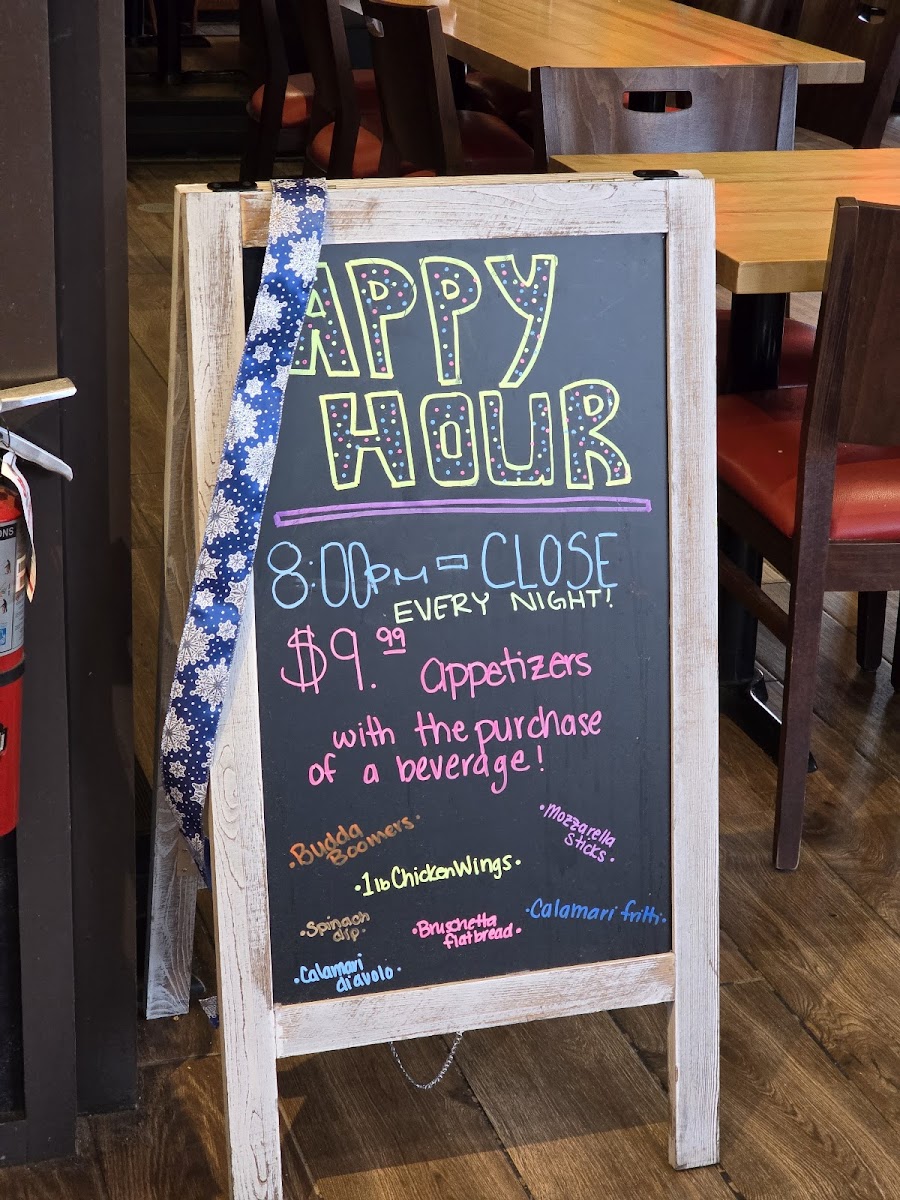 APPY
HOUR
8:00PM - CLOSE
EVERY NIGHT!
$9.99 appetizers
with the purchase
of a beverage!
·Budda
Boomers·
·Mozzarella
Sticks·
·1lb Chicken Wings·
·Spinach
dip·
·Bruschetta
flatbread·
·Calamari fritti·
·Calamari
diavolo·
ONS